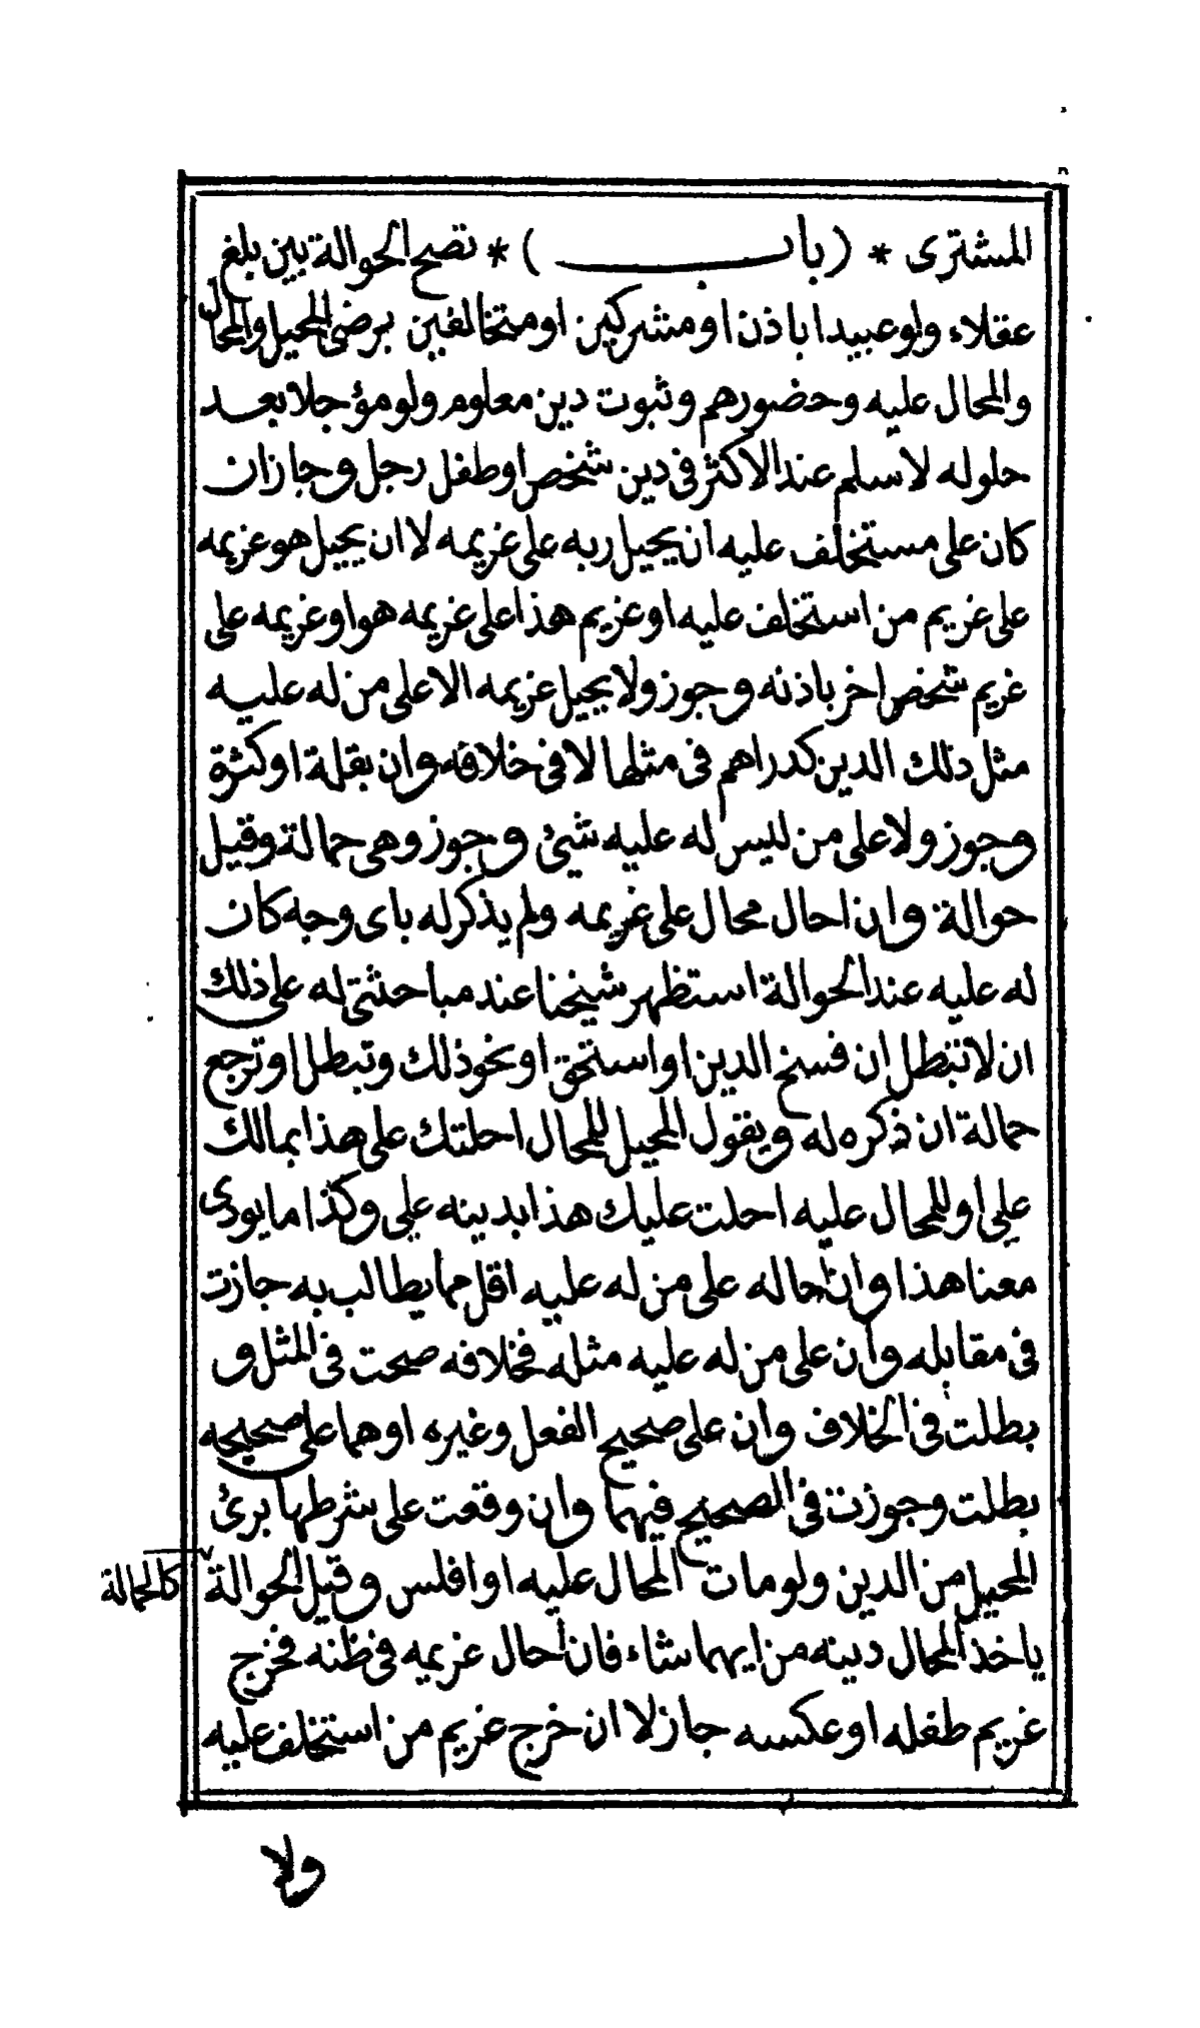 المشترى * (باب) * تصح الحوالة بين بلغ
عقلاء ولو عبيدا باذن او مشركين او متخالفين برضى المحيل والمحال
والمحال عليه وحضورهم وثبوت دين معلوم ولو مؤجلا بعد
حلوله لا سلم عند الاكثر فى دين شخص او طفل رجل وجاز ان
كان على مستخلف عليه ان يحيل ربه على غريمه لا ان يحيل هو غريمه
على غريم من استخلف عليه او غريم هذا على غريمه هو او غريمه على
غريم شخص اخر باذنه وجوز ولا يحيل غريمه الا على من له عليه
مثل ذلك الدين كدراهم فى مثلها لا فى خلافه وان بقلة او كثرة
وجوز ولا على من ليس له عليه شئ وجوز وهى حمالة وقيل
حوالة وان احال محال على غريمه ولم يذكر له باى وجه كان
له عليه عند الحوالة استظهر شيخنا عند مباحثتى له على ذلك
ان لا تبطل ان فسخ الدين او استحق او نحو ذلك وتبطل او ترجع
حمالة ان ذكره له ويقول المحيل للمحال احلتك على هذا بمالك
علي او للمحال عليه احلت عليك هذا بدينه علي وكذا ما يودى
معنا هذا وان احاله على من له عليه اقل مما يطالب به جازت
فى مقابله وان على من له عليه مثله فخلافه صحت فى المثل و
بطلت فى الخلاف وان على صحيح الفعل وغيره او هما على صحيحه
بطلت وجوزت فى الصحيح فيهما وان وقعت على شرطها برئ
المحيل من الدين ولو مات المحال عليه او افلس وقيل الحوالة كالحمالة
ياخذ المحال دينه من ايهما شاء فان احال غريمه فى ظنه فخرج
غريم طفله او عكسه جاز لا ان خرج غريم من استخلف عليه
ولا